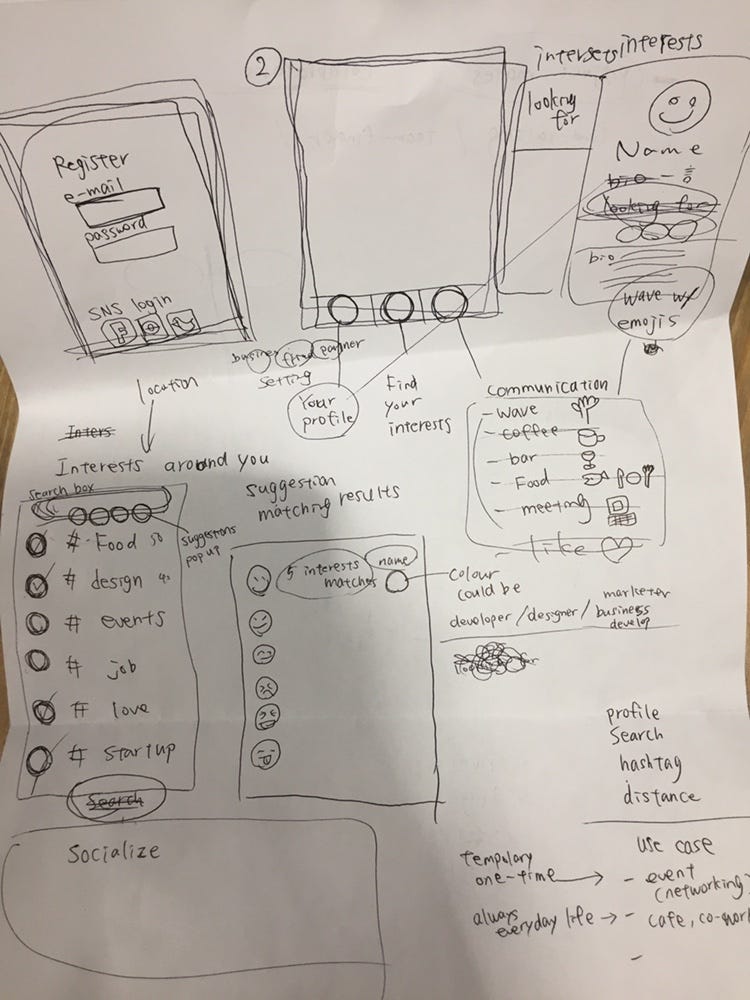 Register
e-mail
password
SNS login
2
intersets interests
looking
for
Name
bio
looking for
bio
wave w/
emojis
setting
Your
profile
Find
your
interests
communication
- wave
- coffee
- bar
- Food
- meeting
- like
location
Inters
Interests around you
search box
suggestions
pop up
# Food 50
# design
# events
# job
# love
# startup
Search
suggestion
matching results
5 interests
matches
name
colour
could be
developer / designer / marketer
business
develop
profile
search
hashtag
distance
use case
tempolary
one-time → - event
(networking)
always
everyday life → - cafe, co-work
-
Socialize